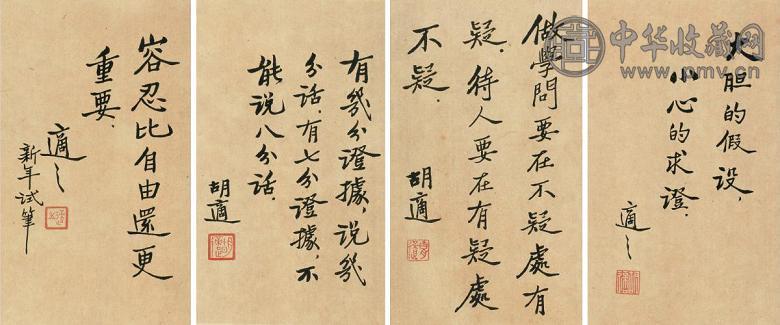 大胆的假设，
小心的求證．
適之
做學問要在不疑處有
疑．待人要在有疑處
不疑．
胡適
有幾分證據，说幾
分话．有七分證據，不
能说八分话．
胡適
容忍比自由還更
重要．
適之
新年试筆
中华收藏网
www.pmv.cn